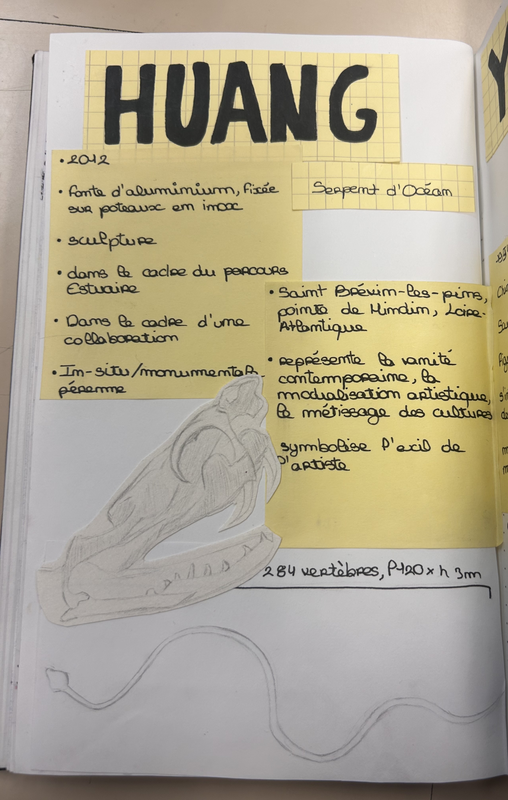 HUANG
• 2012
• Fonte d'aluminium, fixée
sur poteaux en inox
• sculpture
• dans le cadre du parcours
Estuaire
• Dans le cadre d'une
collaboration
• In-situ/monumentale
pérenne
Serpent d'Océan
• Saint Brévin-les-pins,
pointe de Mindin, Loire-
Atlantique
• représente la vanité
contemporaine, la
mondialisation artistique,
le métissage des cultures
symbolise l'exil de
l'artiste
284 vertèbres, P120 x h 3m